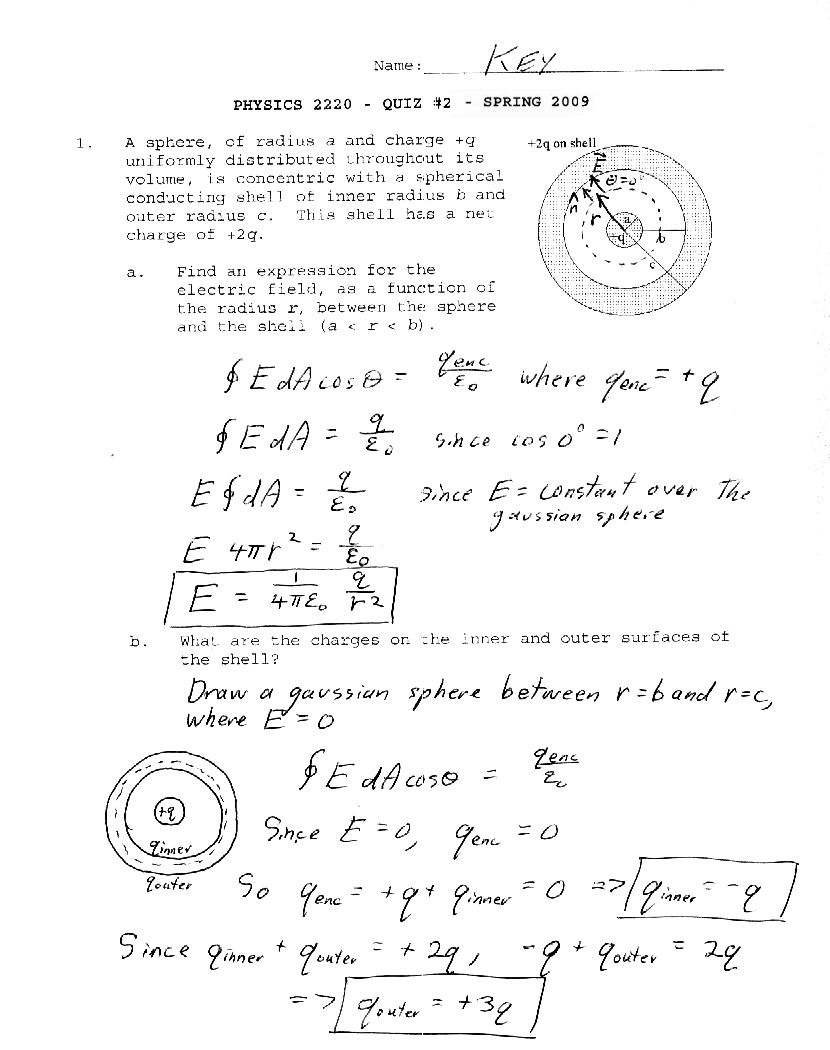 Name: KEY
PHYSICS 2220 - QUIZ #2 - SPRING 2009
1. A sphere, of radius a and charge +q
uniformly distributed throughout its
volume, is concentric with a spherical
conducting shell of inner radius b and
outer radius c. This shell has a net
charge of +2q.
+2q on shell
E
θ=0°
n
r
a
+q
b
c
a. Find an expression for the
electric field, as a function of
the radius r, between the sphere
and the shell (a < r < b).
∮ E dA cos θ = qenc/ε₀ where qenc = +q
∮ E dA = q/ε₀ since cos 0° = 1
E ∮ dA = q/ε₀ since E = constant over the
gaussian sphere
E 4πr² = q/ε₀
E = 1/4πε₀ q/r²
b. What are the charges on the inner and outer surfaces of
the shell?
Draw a gaussian sphere between r=b and r=c,
where E = 0
∮ E dA cos θ = qenc/ε₀
+q
qinner
qouter
Since E = 0, qenc = 0
So qenc = +q + qinner = 0 => qinner = -q
Since qinner + qouter = +2q, -q + qouter = 2q
=> qouter = +3q